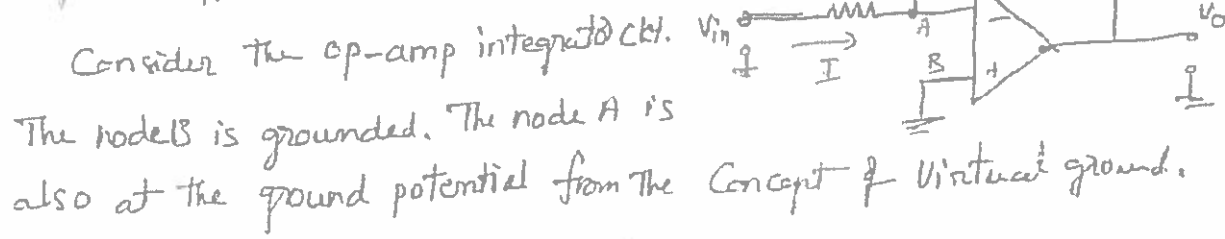 Consider the op-amp integrator ckt.
Vin
I
A
B
-
+
Vo
The node B is grounded. The node A is
also at the ground potential from The Concept of Virtual ground.